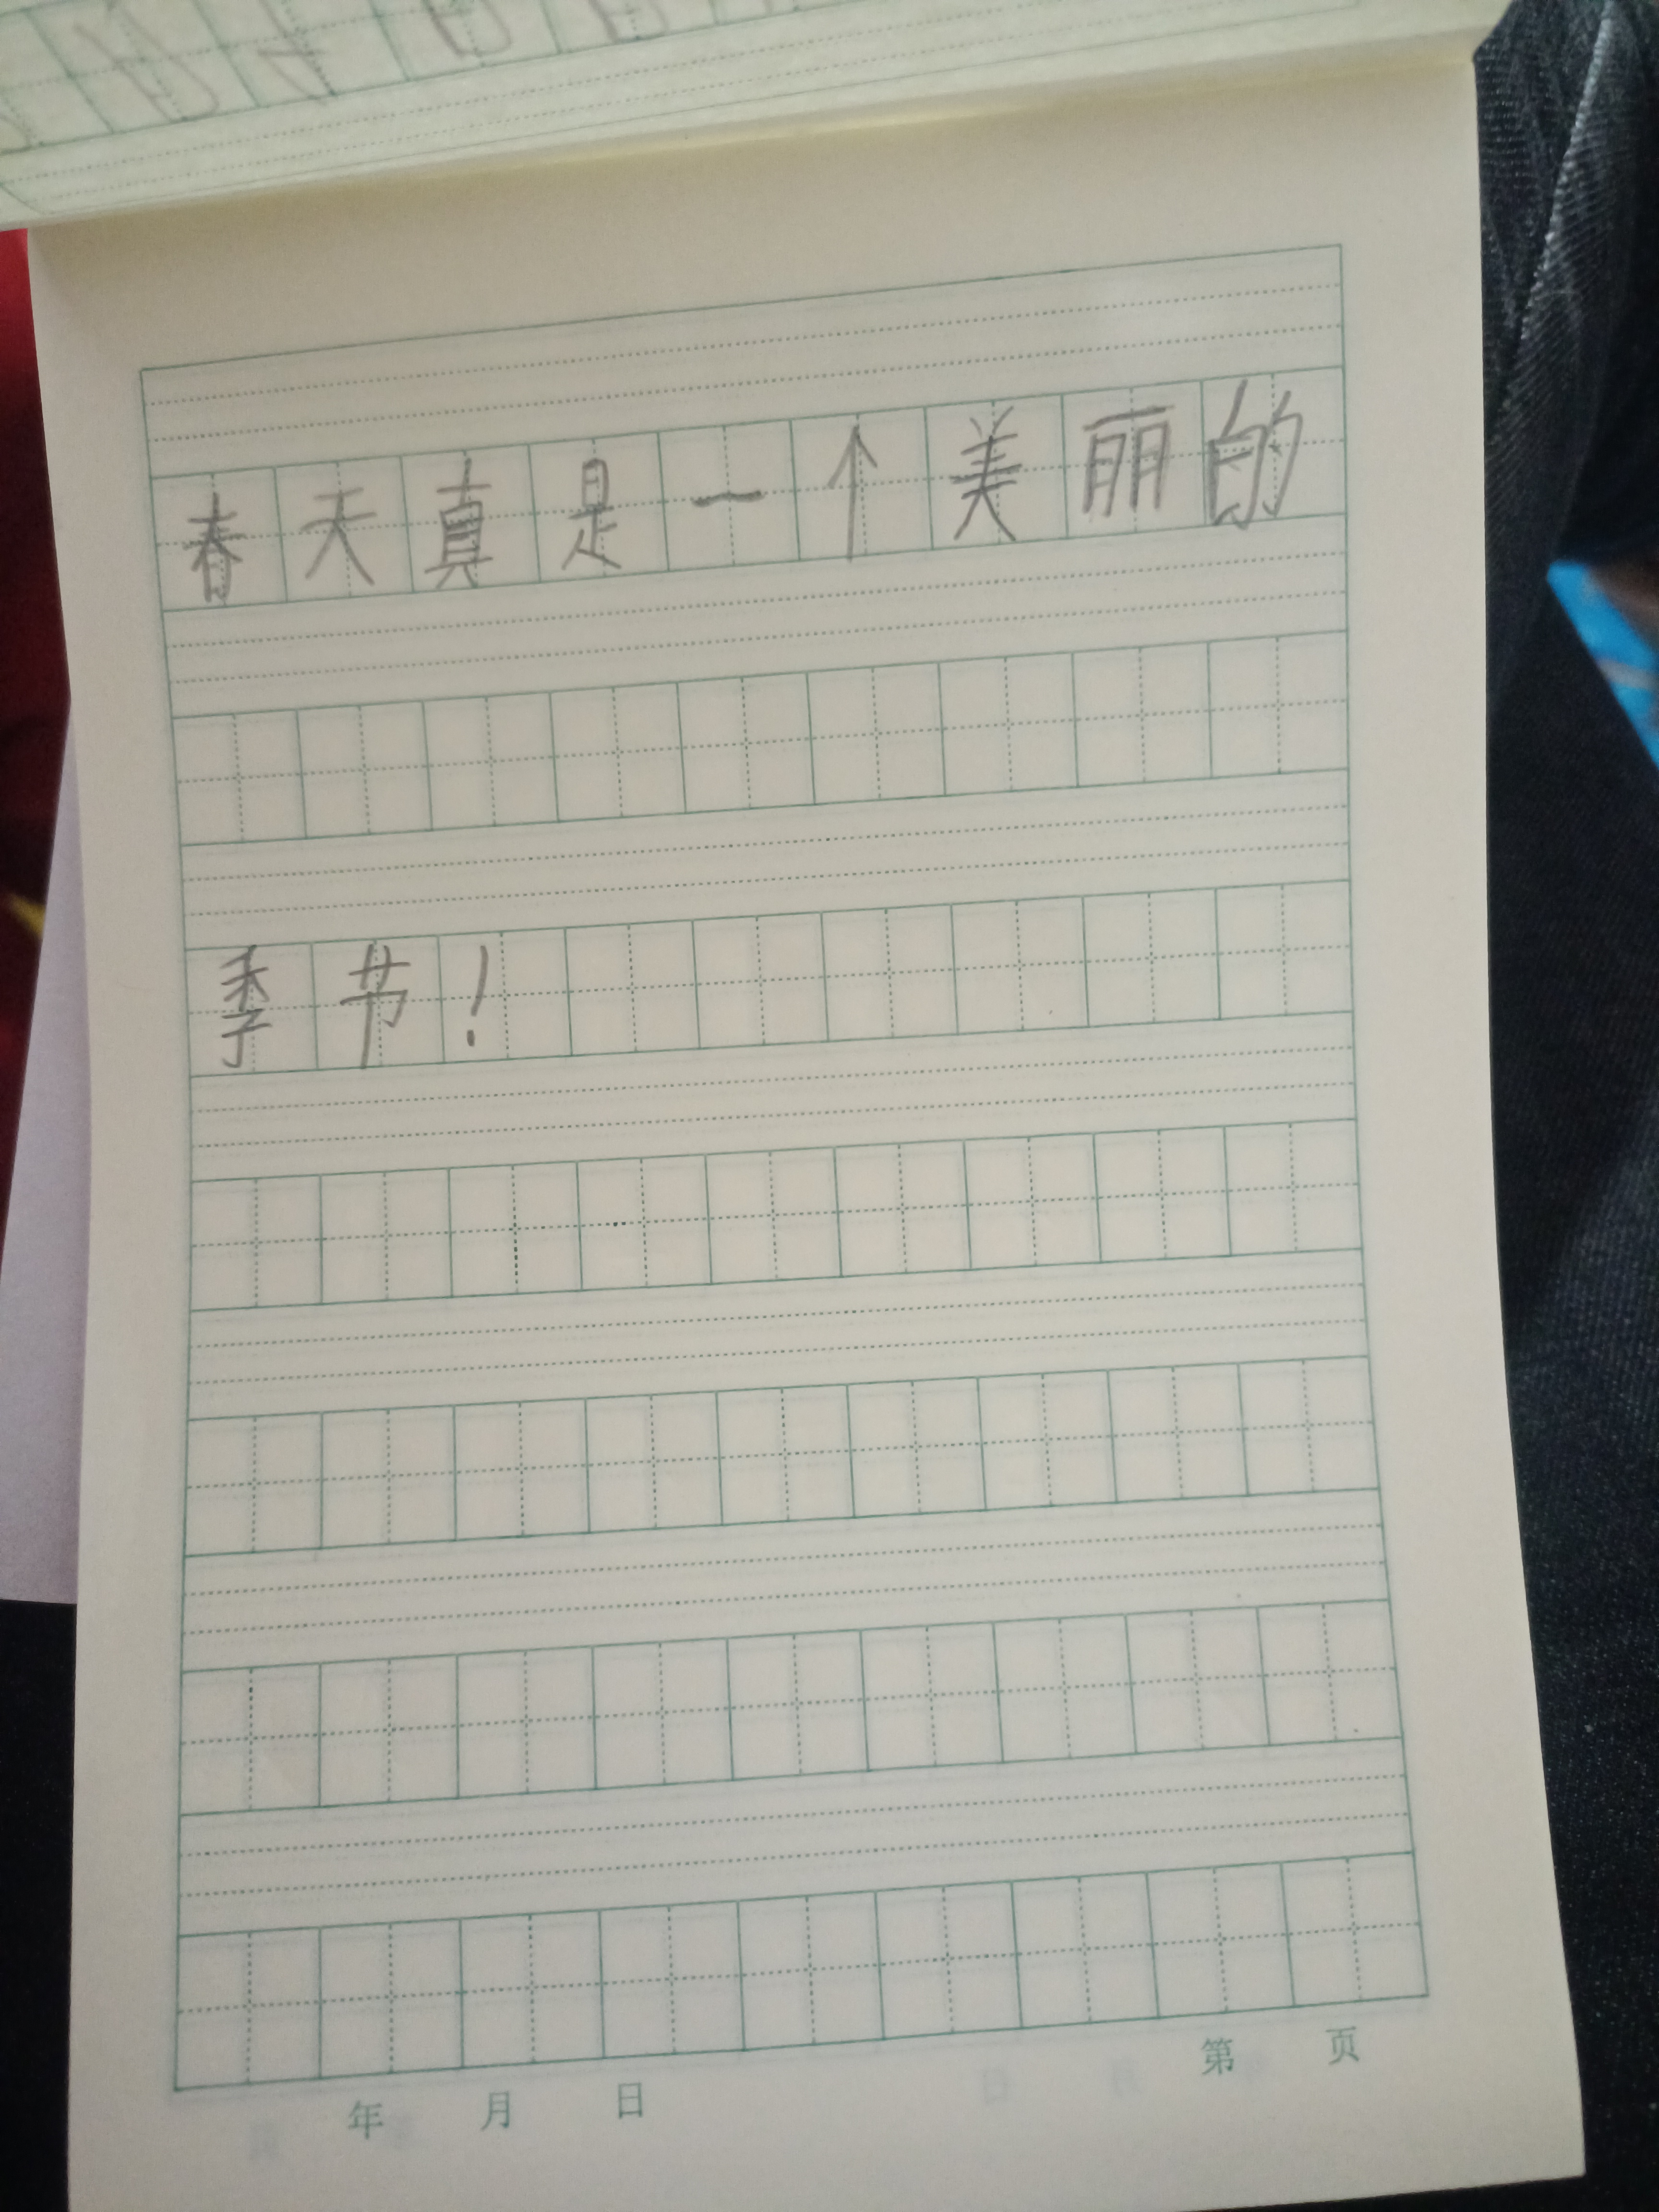 春天真是一个美丽的
季节！
年 月 日 第 页